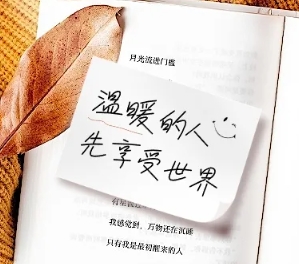 月光流进门槛
温暖的人
先享受世界
我感觉到，万物还在沉睡
只有我是最初醒来的人